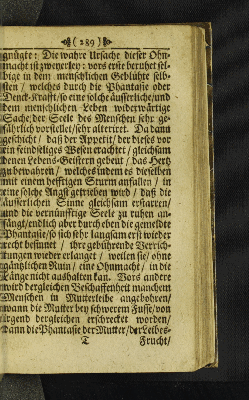 ( 289 )
gnügt: Die wahre Ursache dieser Ohn-
macht ist zweyerley: vors erste beruhet sel-
bige in dem menschlichen Geblühte selb-
sten / welches durch die Phantasie oder
Denck-Krafft / so eine solche äusserliche / und
dem menschlichen Leben widerwärtige
Sache / der Seele des Menschen sehr ge-
fährlich vorstellet / sehr alteriret. Da dann
geschicht / daß der Appetit / der dieses vor
ein feindseliges Wesen erachtet / gleichsam
denen Lebens-Geistern gebeut / das Hertz
zu bewahren / welches indem es dieselben
mit einem hefftigen Sturm anfallen / in
eine solche Angst getrieben wird / daß die
äusserlichen Sinne gleichsam erstarren /
und die vernünfftige Seele zu ruhen an-
fängt / endlich aber durch eben die gemeldte
Phantasie / so sich sehr langsam erst wieder
recht besinnet / ihre gebührende Verrich-
tungen wieder erlanget / weilen sie / ohne
gäntzlichen Ruin / eine Ohnmacht / in die
Länge nicht aushalten kan. Vors andere
wird dergleichen Beschaffenheit manchem
Menschen in Mutterleibe angebohren /
wann die Mutter bey schwerem Fusse / von
irgend dergleichen erschrecket worden /
dann die Phantasie der Mutter / der Leibes-
T Frucht /